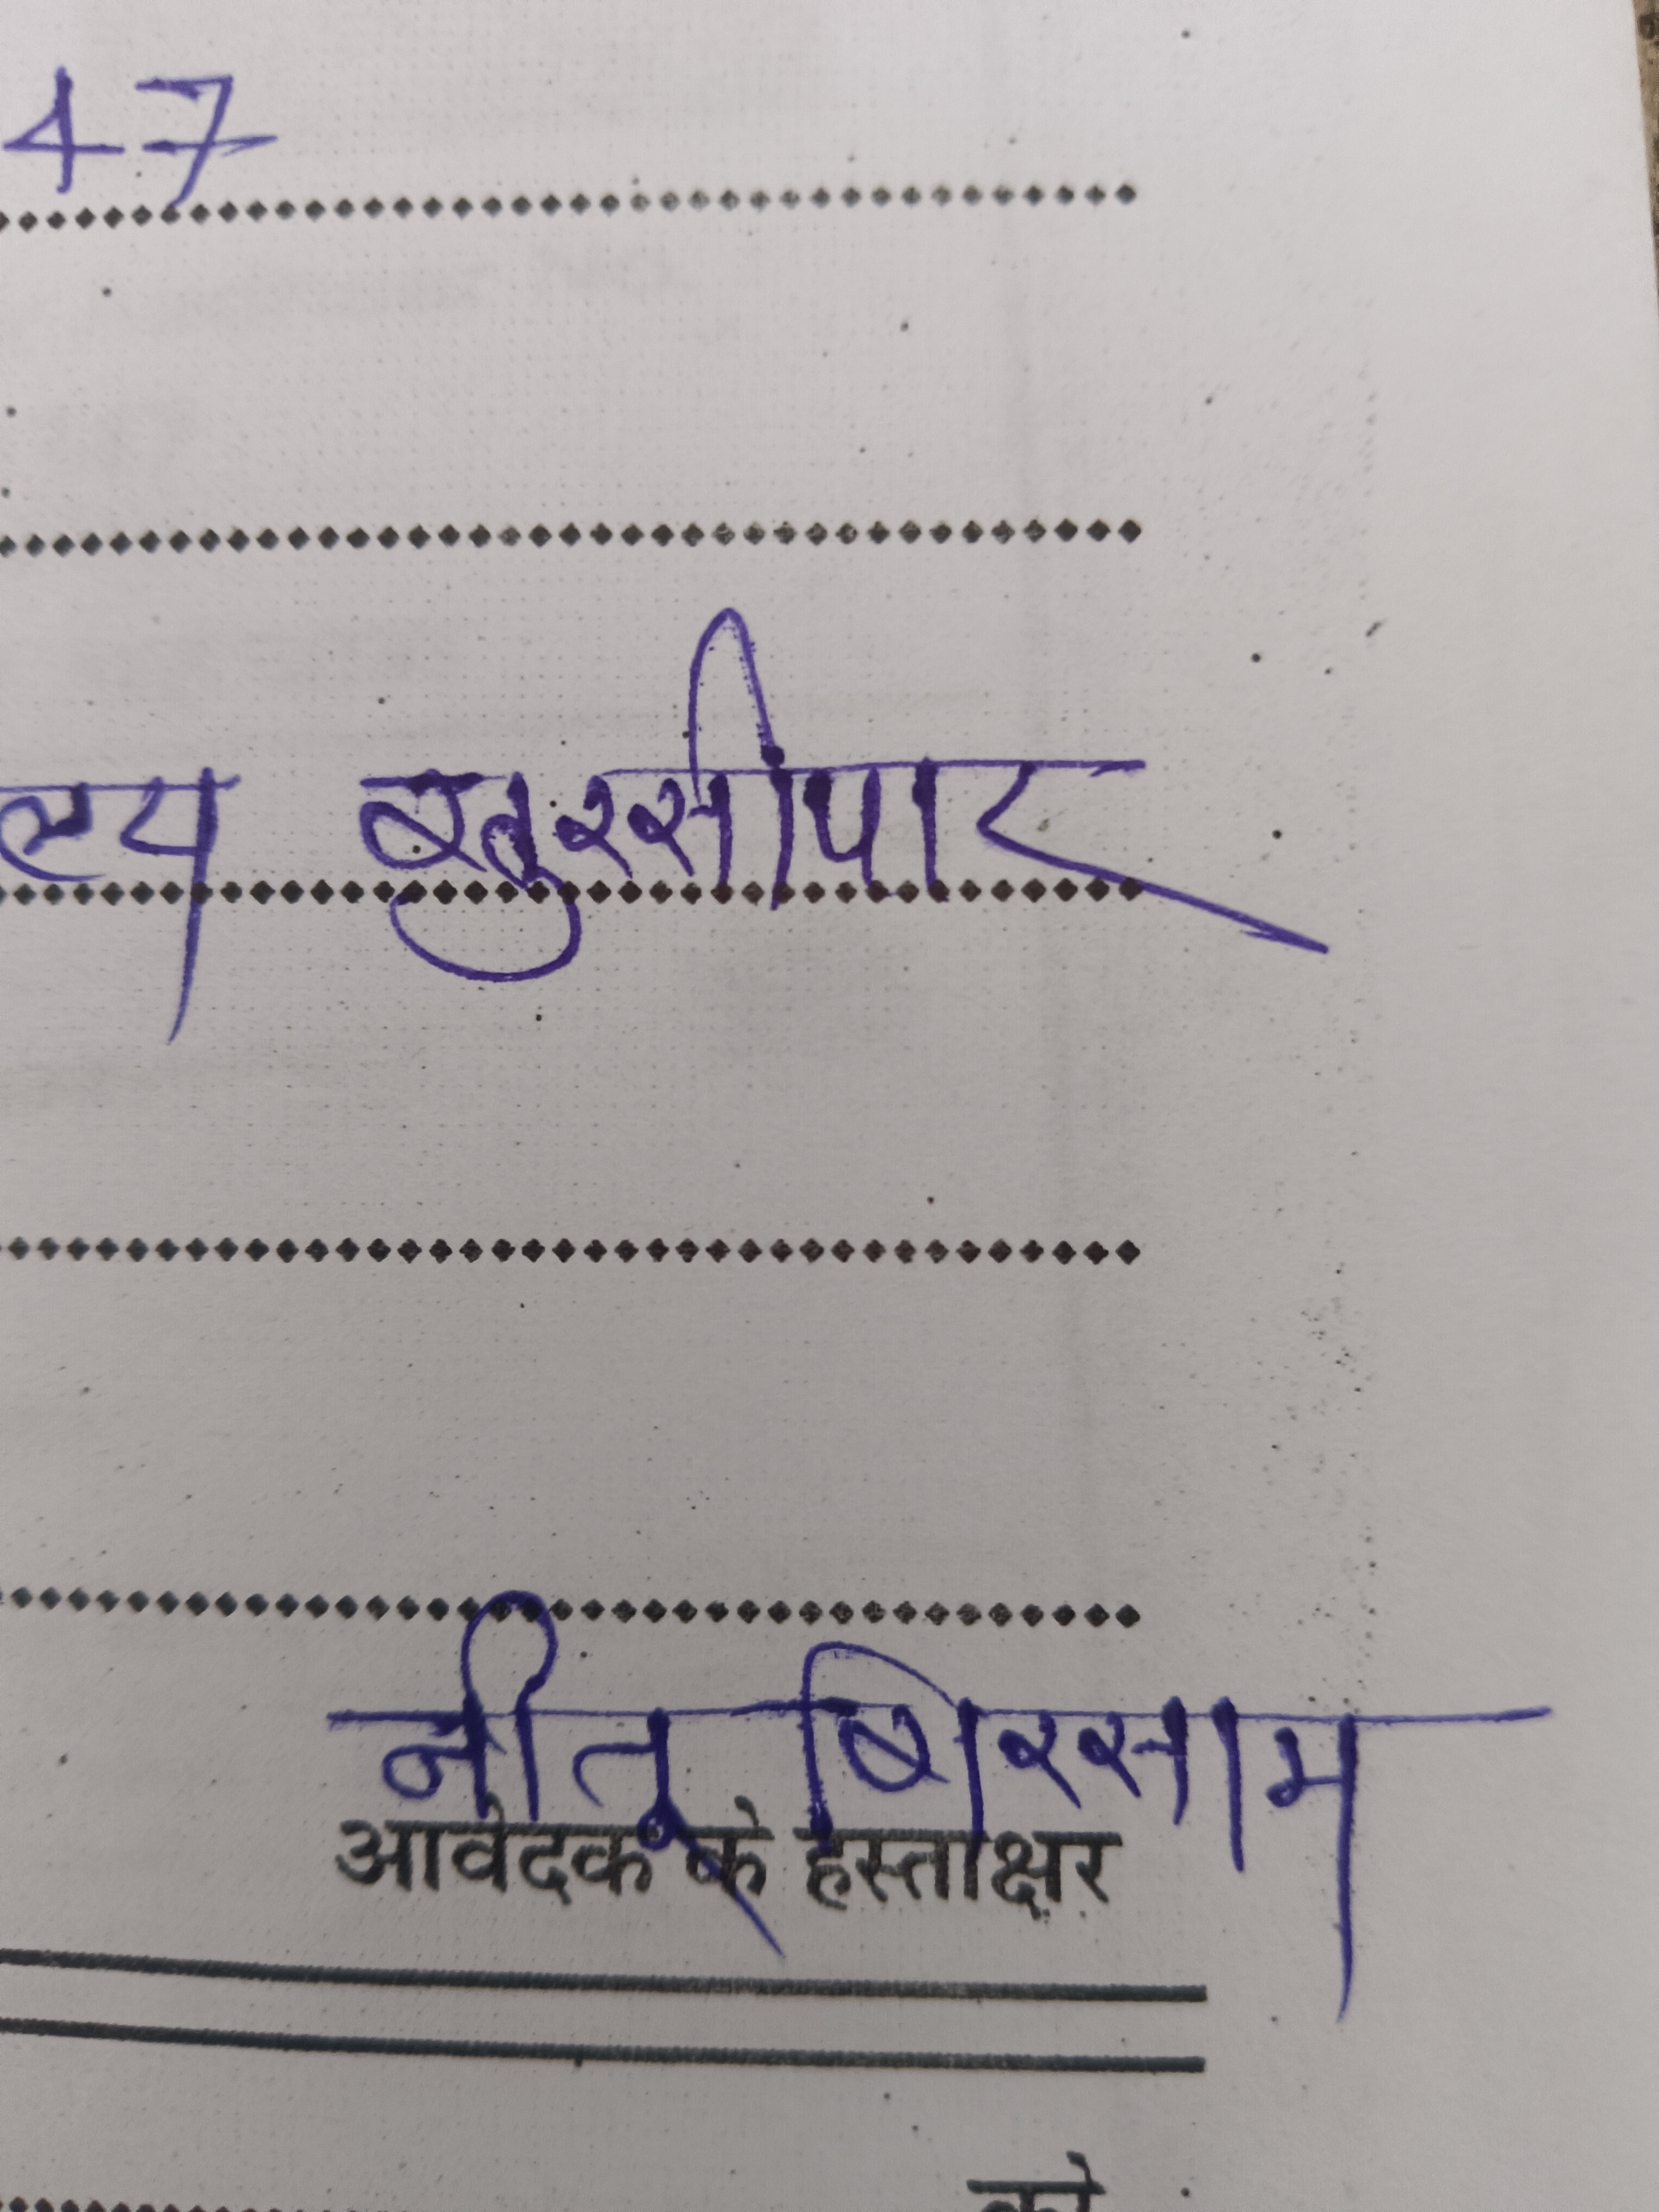 47
ल्य खुरसीपार
नीतू बिरसाम
आवेदक के हस्ताक्षर
को